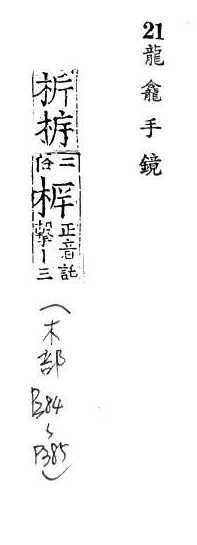 21龍龕手鏡
二俗
正音託
擊｜三
(木部
P384
~
P385)